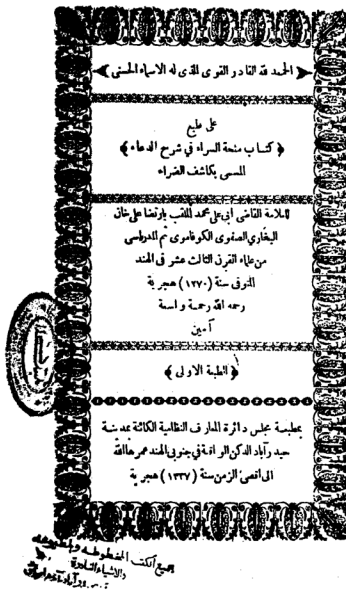 الحمد لله القادر القوى الذى له الاسماء الحسنى
على طبع
﴿ كتاب منحة السراء فى شرح الدعاء ﴾
المسمى بكاشف الضراء
للعلامة القاضى ابى على محمد الملقب بارتضا على خان
البخارى الصفوى الكوفاموى ثم المدراسى
من علماء القرن الثالث عشر فى الهند
المتوفى سنة (١٢٧٠) هجرية
رحمه الله رحمة واسعة
آمين
﴿ الطبعة الاولى ﴾
بمطبعة مجلس دائرة المعارف النظامية الكائنة بمدينة
حيدرآباد الدكن الواقعة فى جنوبى الهند عمرها الله
الى اقصى الزمن سنة (١٣٣٧) هجرية
جميع الكتب المخطوطه و
والاشياء النادرة